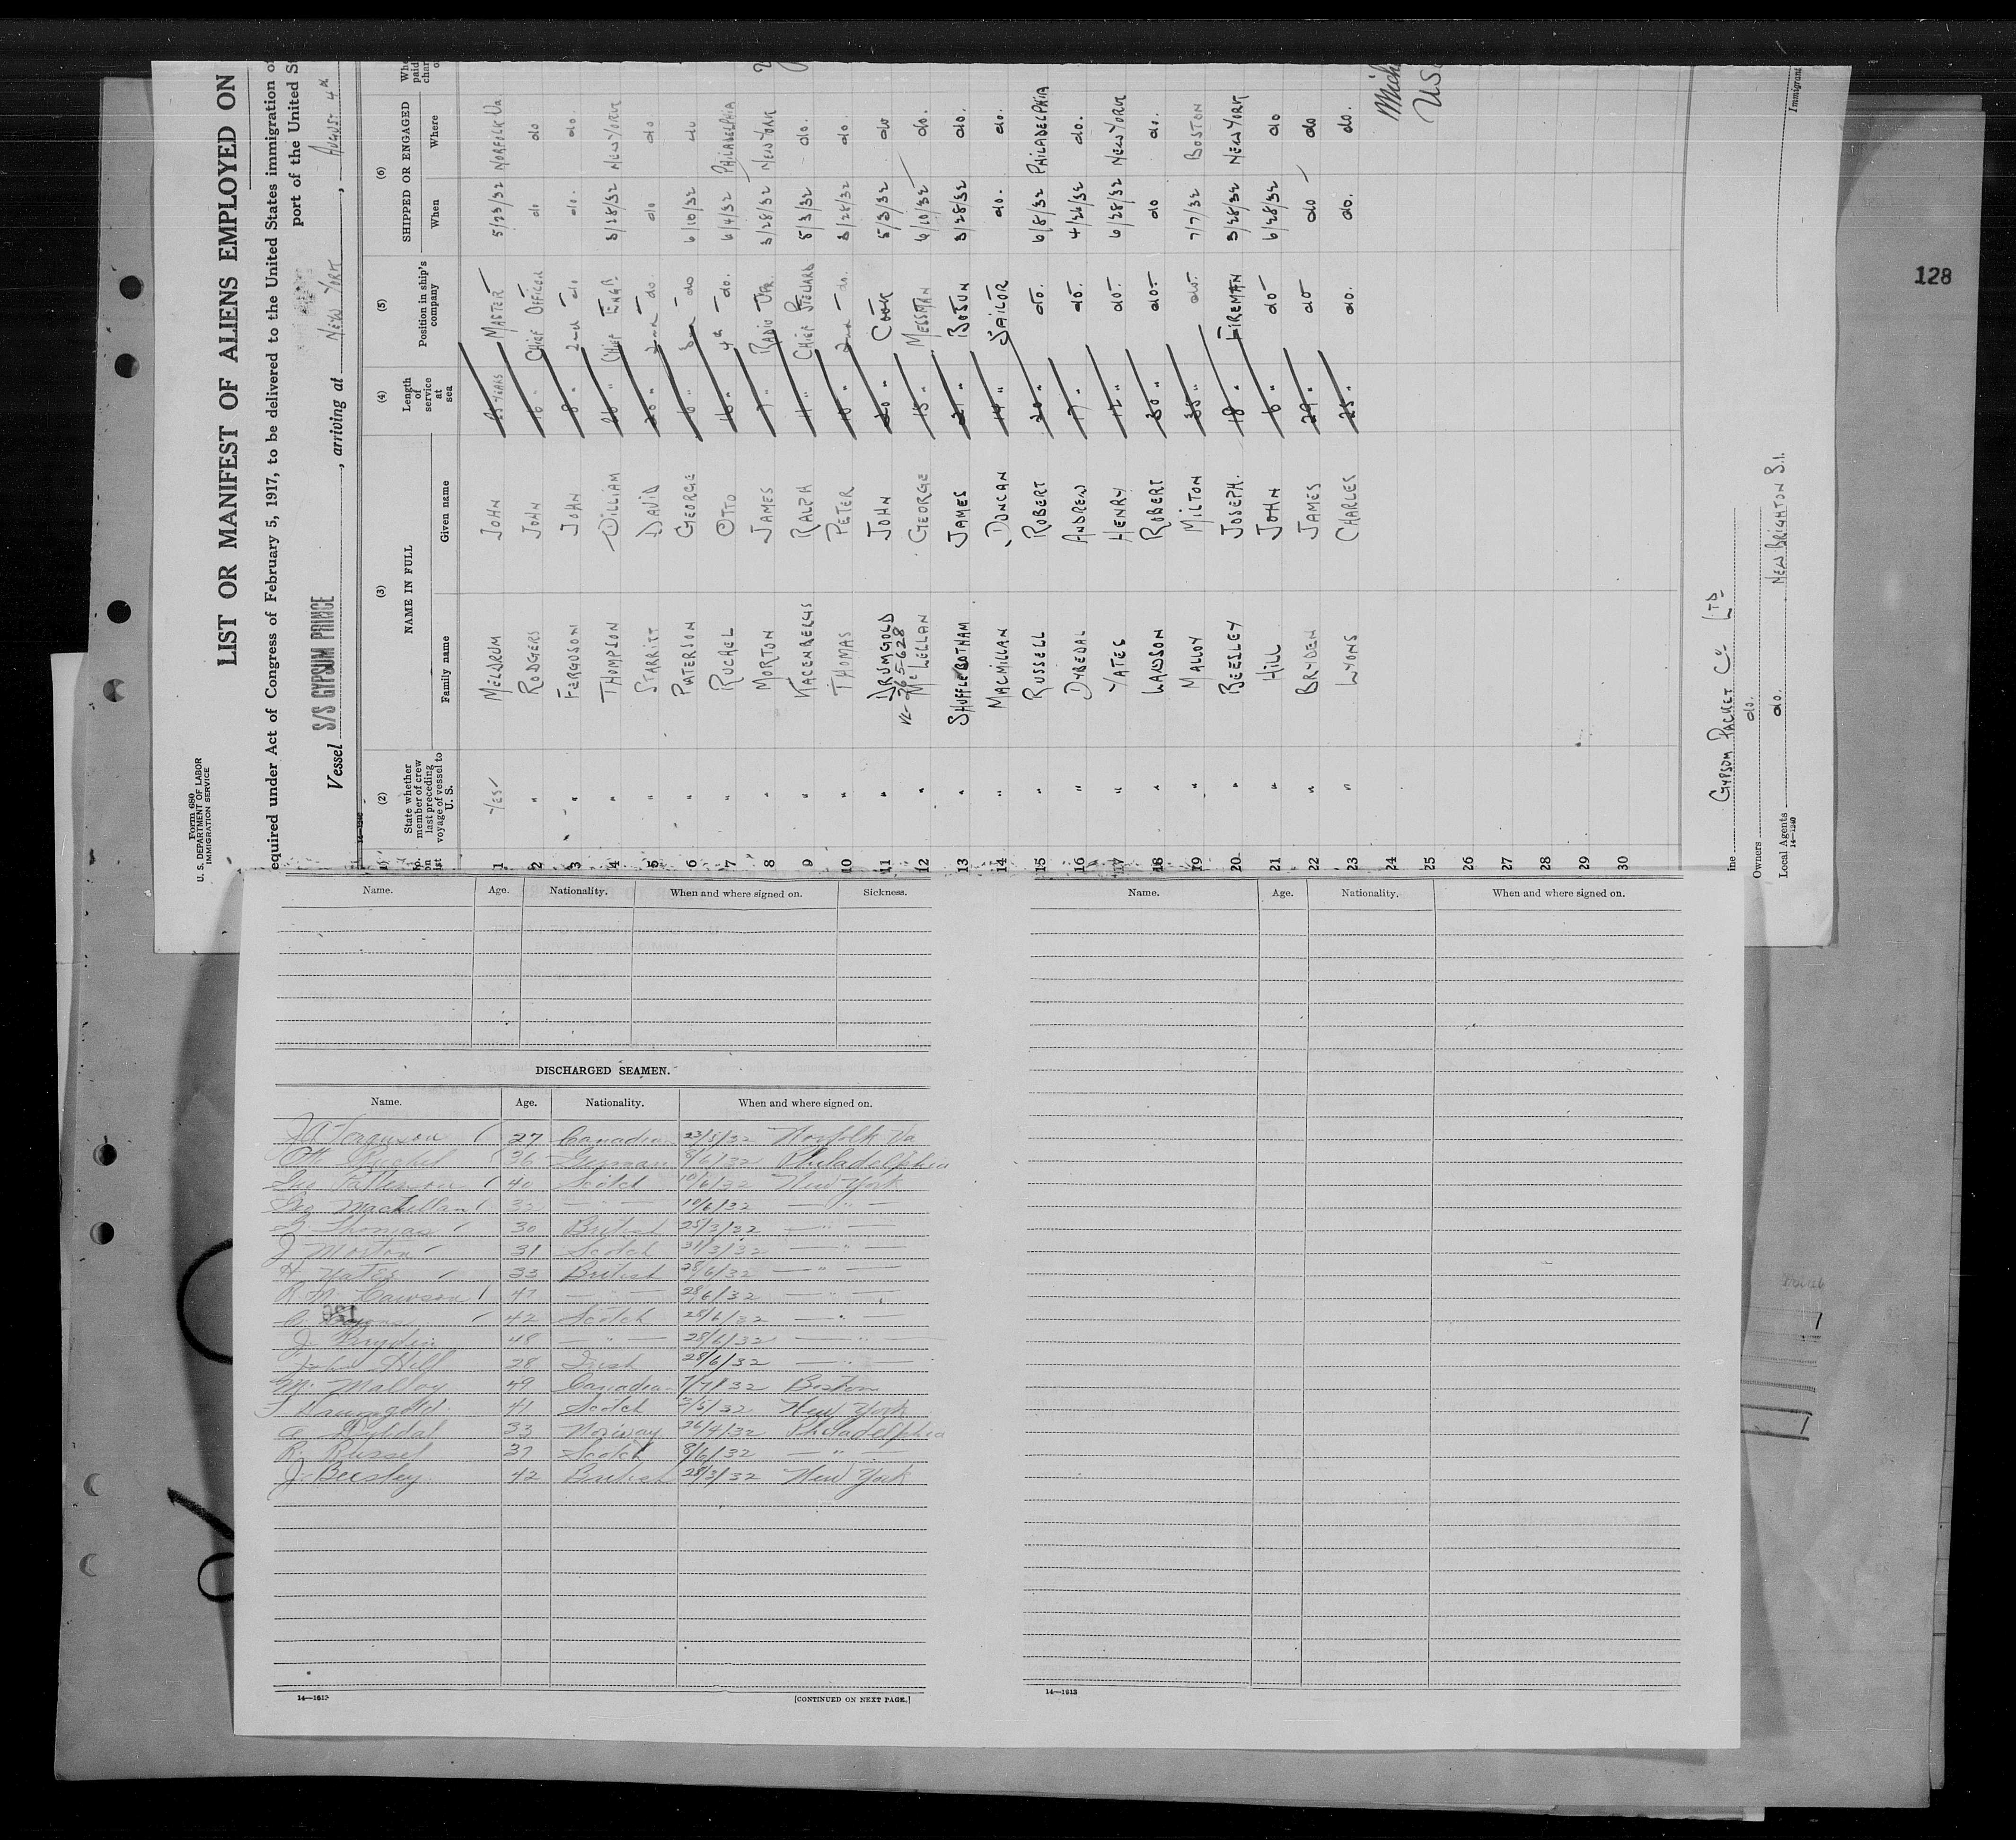 Form 680
U. S. DEPARTMENT OF LABOR
IMMIGRATION SERVICE
LIST OR MANIFEST OF ALIENS EMPLOYED ON
equired under Act of Congress of February 5, 1917, to be delivered to the United States immigration of
port of the United S
Vessel S/S GYPSUM PRINCE, arriving at NEW YORK, AUGUST 4th
(2) (3) (4) (5) (6)
State whether member of crew last preceding voyage of vessel to U. S. NAME IN FULL Family name Given name Length of service at sea Position in ship's company SHIPPED OR ENGAGED When Where
1 YES MELDRUM JOHN YEARS MASTER 5/23/32 NORFOLK VA.
2 " RODGERS JOHN 16 " CHIEF OFFICER do do
3 " FERGUSON JOHN 8 " 2nd do do. do.
4 " THOMPSON WILLIAM 26 " CHIEF ENGR 3/28/32 NEW YORK
5 " STARRITT DAVID 20 " 2nd do. do do
6 " PATERSON GEORGE " do 6/10/32 do
7 " RUCHEL OTTO 16 " 4th do. 6/4/32 PHILADELPHIA
8 " MORTON JAMES 7 " RADIO OPR. 3/28/32 NEW YORK
9 " RALPH 11 " CHIEF STEWARD 5/3/32 do.
10 " THOMAS PETER 10 " 2nd do. 3/28/32 do.
11 " DRUMGOLD JOHN 20 " COOK 5/3/32 do
265628
12 " McLELLAN GEORGE 15 " MESSMAN 6/10/32 do.
13 " SHUFFLEBOTHAM JAMES 21 " BOSUN 3/28/32 do.
14 " MACMILLAN DUNCAN 14 " SAILOR do. do.
15 " RUSSELL ROBERT 20 " do. 6/8/32 PHILADELPHIA
16 " DYBEDAL ANDREW 17 " do. 4/26/32 do.
17 " YATES HENRY 12 " do. 6/28/32 NEW YORK
18 " LAWSON ROBERT 30 " do. do do.
19 " MALLOY MILTON 35 " do. 7/7/32 BOSTON
20 " BEESLEY JOSEPH. 18 " FIREMAN 3/28/32 NEW YORK
21 " HILL JOHN 6 " do 6/28/32 do
22 " BRYDEN JAMES 29 " do do do
23 " LYONS CHARLES 25 " do. do. do.
24
25
26
27
28
29
30
ine GYPSUM PACKET Co LTD
Owners do.
Local Agents do. NEW BRIGHTON S.I.
14-1240
Immigrant
128
Name. Age. Nationality. When and where signed on. Sickness.
DISCHARGED SEAMEN.
Name. Age. Nationality. When and where signed on.
J A Ferguson 27 Canadian 23/5/32 Norfolk Va
Ruchel 36 German 8/6/32 Philadelphia
Geo Patterson 40 Scotch 10/6/32 New York
Geo MacLellan 32 — " — 10/6/32 — " —
Thomas 30 British 25/3/32 — " —
J Morton 31 Scotch 31/3/32 — " —
H Yates 33 British 28/6/32 — " —
R. M. Lawson 47 — " — 28/6/32 — " —
C. Lyons 42 Scotch 28/6/32 — " —
J Bryden 48 — " — 28/6/32 — " —
Hill 28 Irish 28/6/32 — " —
M. Malloy 49 Canadian 7/7/32 Boston
J Drumgold 41 Scotch 3/5/32 New York
a Dybdal 33 Norway 26/4/32 Philadelphia
R. Russel 37 Scotch 8/6/32 — " —
J. Beesley 42 British 28/3/32 New York
14—1613
[CONTINUED ON NEXT PAGE.]
Name. Age. Nationality. When and where signed on.
14—1613